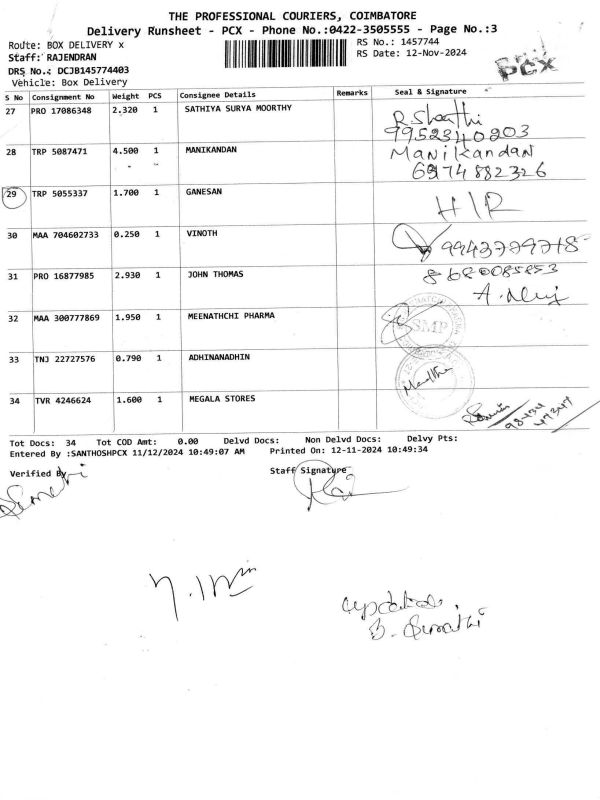 THE PROFESSIONAL COURIERS, COIMBATORE
Delivery Runsheet - PCX - Phone No.:0422-3505555 - Page No.:3
Route: BOX DELIVERY x RS No.: 1457744
Staff: RAJENDRAN RS Date: 12-Nov-2024
DRS No.: DCJB145774403
Vehicle: Box Delivery
PCX
S No Consignment No Weight PCS Consignee Details Remarks Seal & Signature
27 PRO 17086348 2.320 1 SATHIYA SURYA MOORTHY
9952340203
28 TRP 5087471 4.500 1 MANIKANDAN Manikandan
6974882326
29 TRP 5055337 1.700 1 GANESAN
30 MAA 704602733 0.250 1 VINOTH
31 PRO 16877985 2.930 1 JOHN THOMAS
32 MAA 300777869 1.950 1 MEENATHCHI PHARMA SMP
33 TNJ 22727576 0.790 1 ADHINANADHIN
34 TVR 4246624 1.600 1 MEGALA STORES
Tot Docs: 34 Tot COD Amt: 0.00 Delvd Docs: Non Delvd Docs: Delvy Pts:
Entered By :SANTHOSHPCX 11/12/2024 10:49:07 AM Printed On: 12-11-2024 10:49:34
Verified By Staff Signature
B. Sumathi